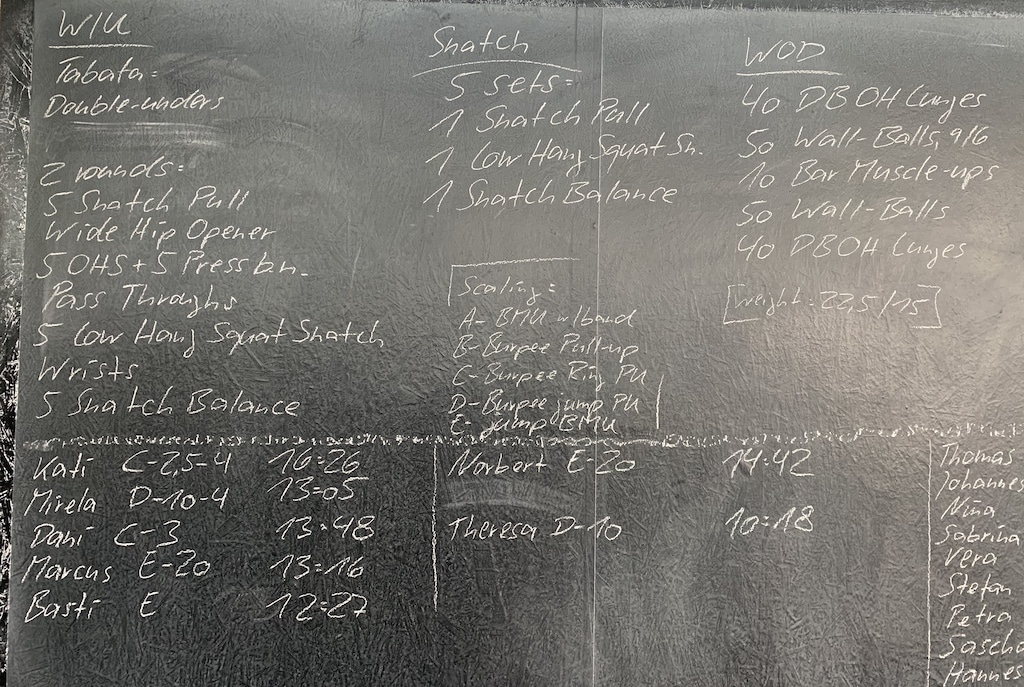 W/U
Tabata:
Double-unders
2 rounds:
5 Snatch Pull
Wide Hip Opener
5 OHS + 5 Press b.n.
Pass Throughs
5 Low Hang Squat Snatch
Wrists
5 Snatch Balance
Snatch
5 sets:
1 Snatch Pull
1 Low Hang Squat Sn.
1 Snatch Balance
Scaling:
A- BMU w/band
B- Burpee Pull-up
C- Burpee Ring PU
D- Burpee jump PU
E- jump BMU
WOD
40 DB OH Lunges
50 Wall-Balls, 9/6
10 Bar Muscle-ups
50 Wall-Balls
40 DB OH Lunges
[Weight: 22,5/15]
Kati C-2,5-4 16:26
Mirela D-10-4 13:05
Dani C-3 13:48
Marcus E-20 13:16
Basti E 12:27
Norbert E-20 14:42
Theresa D-10 10:18
Thomas
Johannes
Nina
Sabrina
Vera
Stefan
Petra
Sascha
Hannes